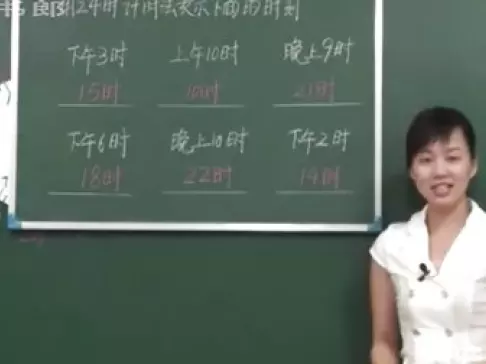 用24时计时法表示下面的时刻
下午3时 上午10时 晚上9时
15时 10时 21时
下午6时 晚上10时 下午2时
18时 22时 14时